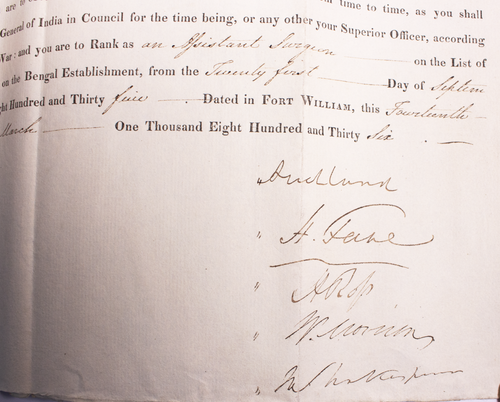 are to time to time, as you shall
General of India in Council for the time being, or any other your Superior Officer, according
War: and you are to Rank as an Assistant Surgeon on the List of
on the Bengal Establishment, from the Twenty first Day of Septem
ght Hundred and Thirty five Dated in FORT WILLIAM, this Fourteenth
March One Thousand Eight Hundred and Thirty Six.
Auckland
H. Fane
A Ross
W. Morison
Shakespear